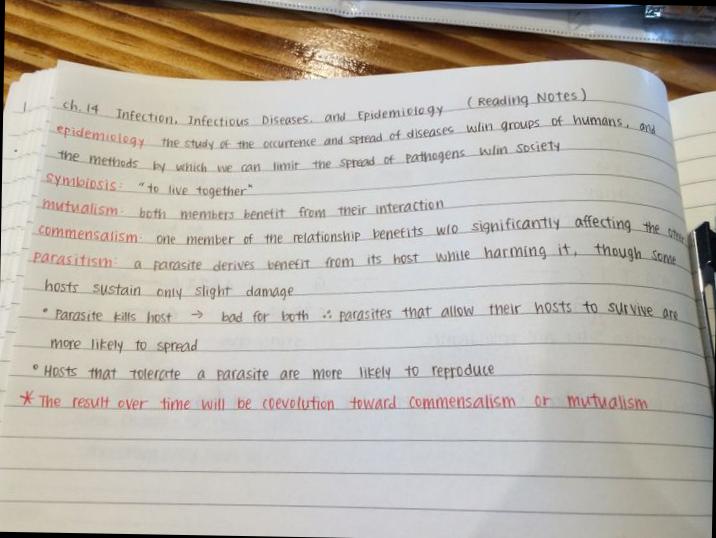 1
ch. 14 Infection, Infectious Diseases, and Epidemiology (Reading Notes)
epidemiology the study of the occurrence and spread of diseases w/in groups of humans, and
the methods by which we can limit the spread of pathogens w/in society
symbiosis: "to live together"
mutualism: both members benefit from their interaction
commensalism: one member of the relationship benefits w/o significantly affecting the other
parasitism: a parasite derives benefit from its host while harming it, though some
hosts sustain only slight damage
• Parasite kills host → bad for both ∴ parasites that allow their hosts to survive are
more likely to spread
• Hosts that tolerate a parasite are more likely to reproduce
* The result over time will be coevolution toward commensalism or mutualism